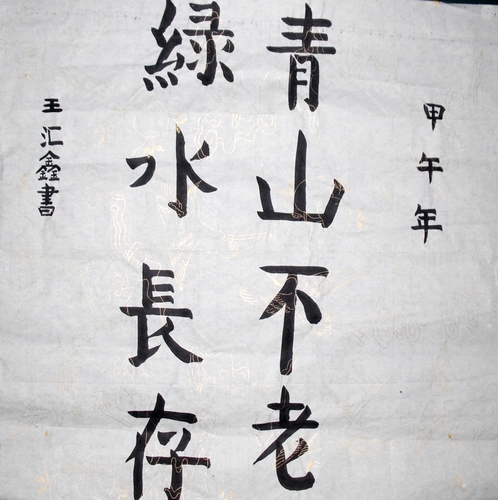 甲午年
青山不老
緑水長存
王汇鑫書